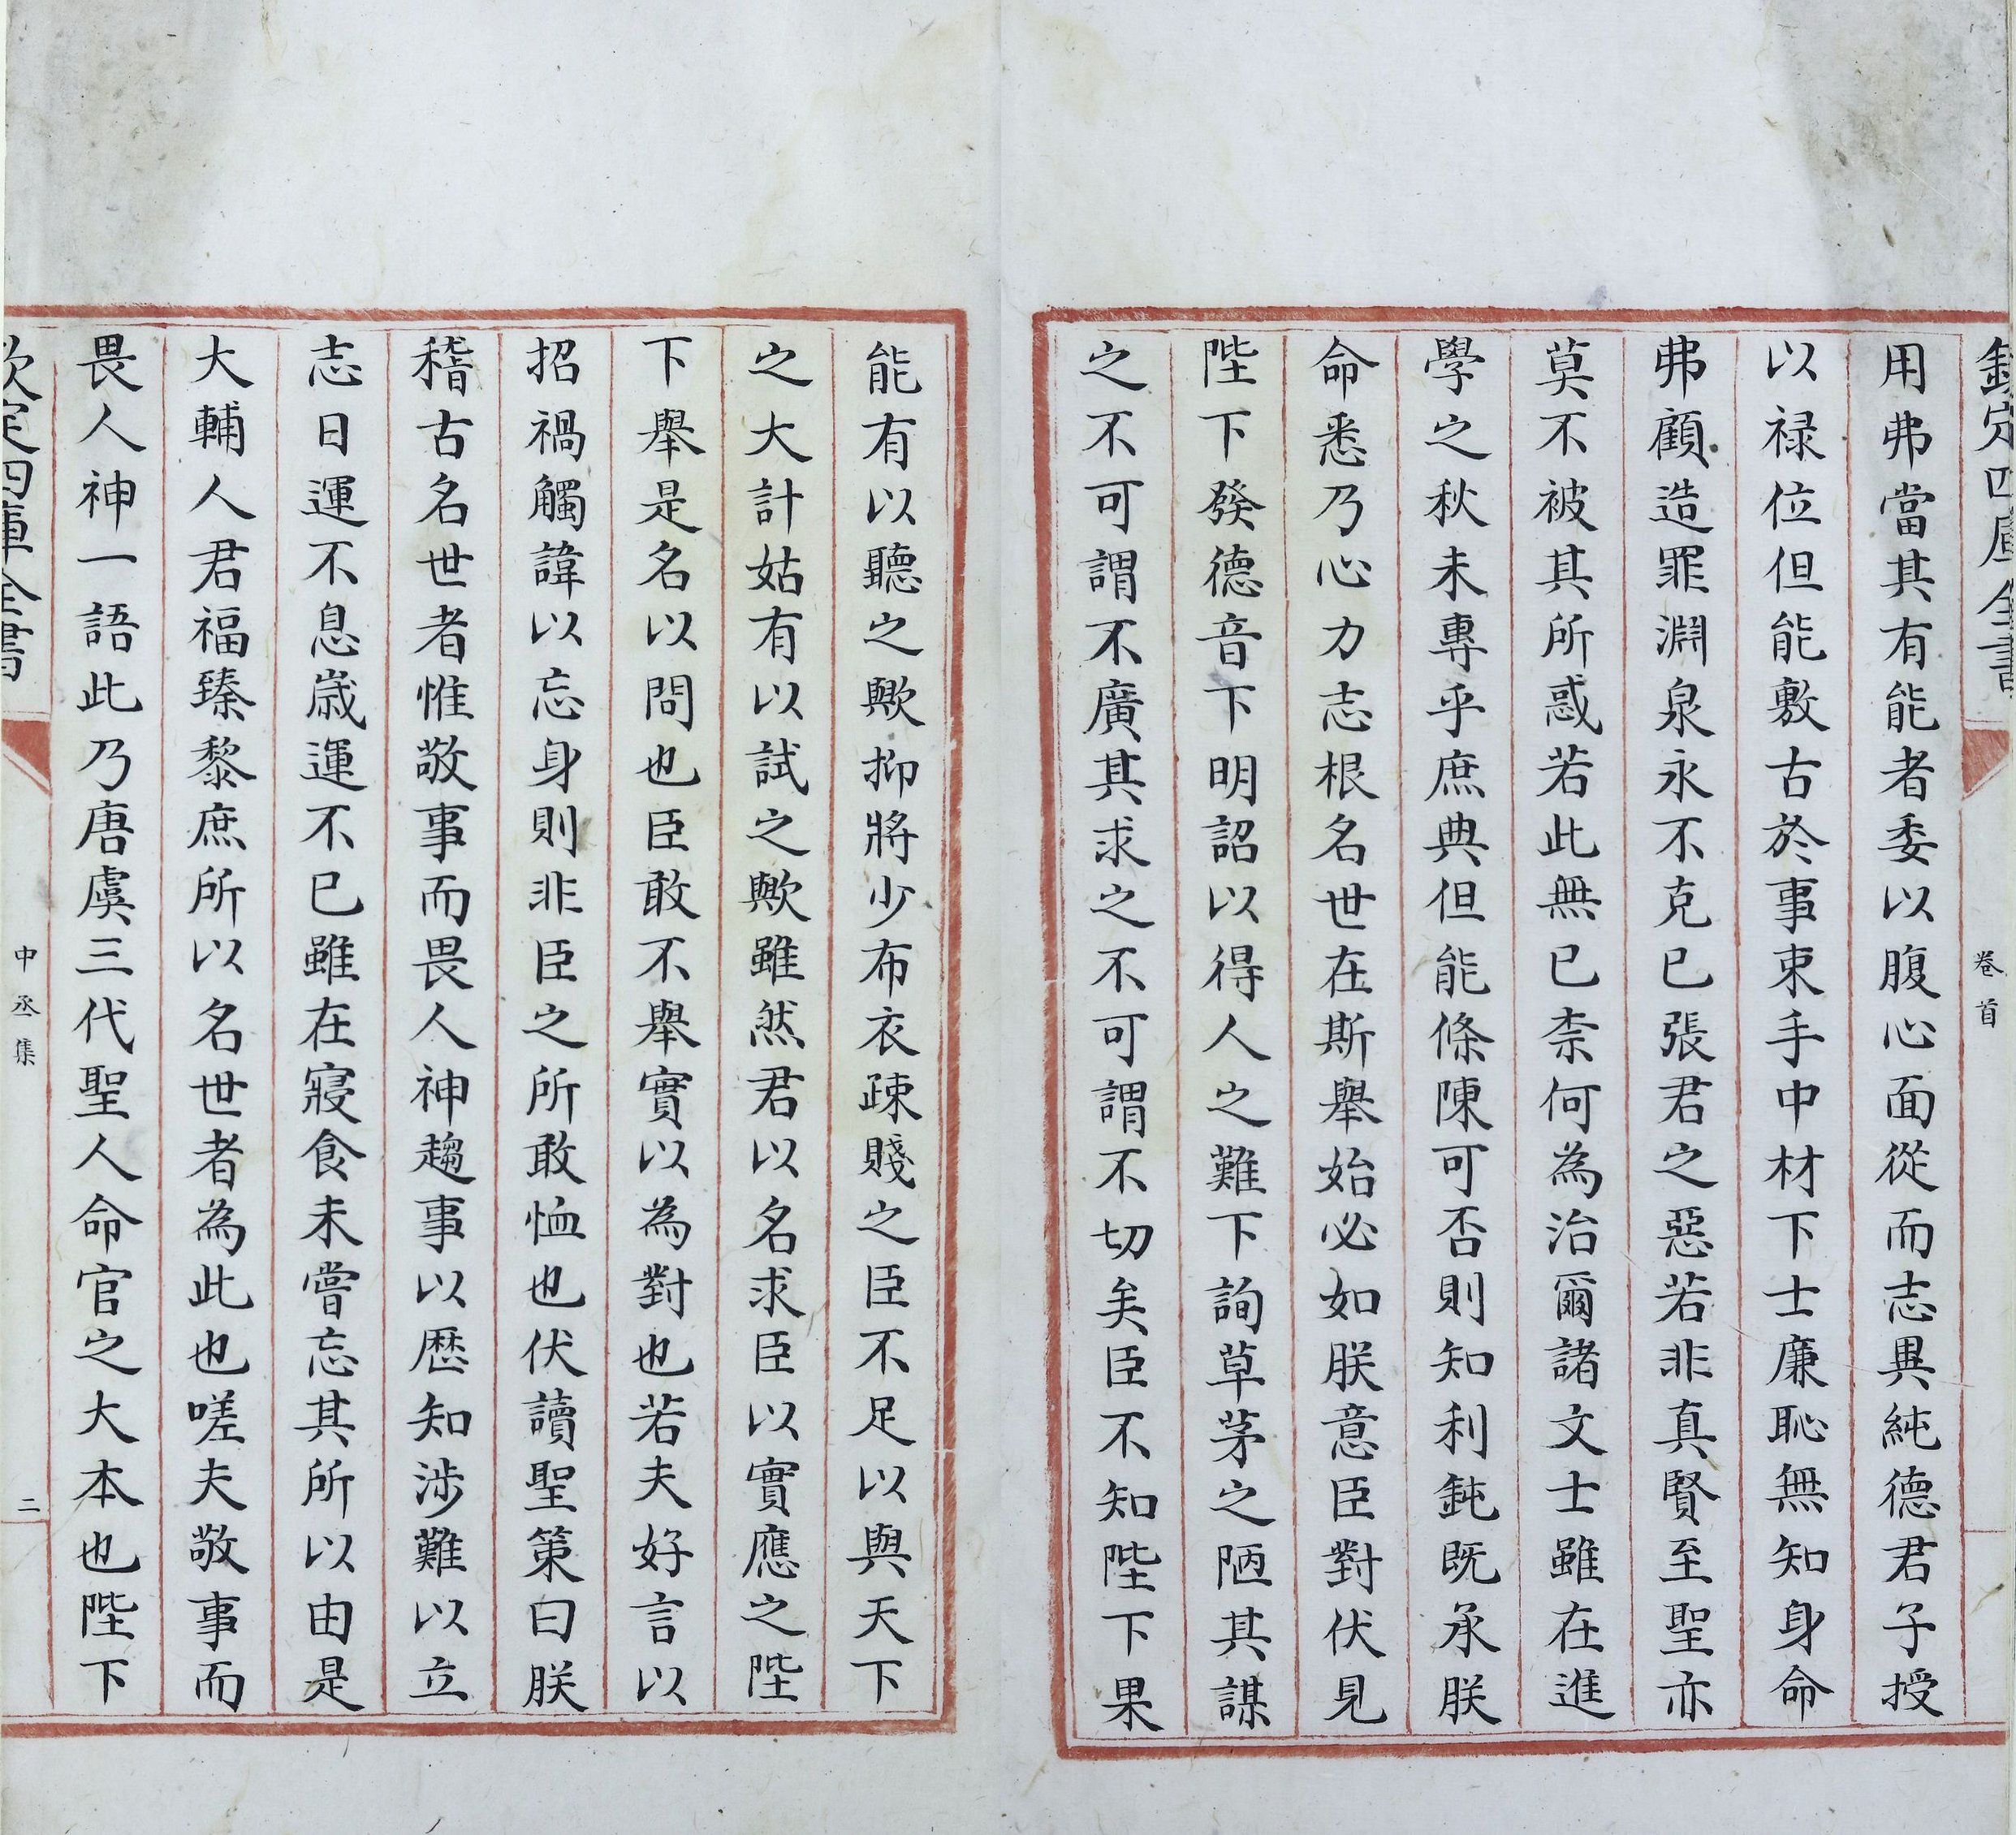 欽定四庫全書
卷首
用弗當其有能者委以腹心面從而志異純德君子授
以禄位但能敷古於事束手中材下士廉恥無知身命
弗顧造罪淵泉永不克已張君之惡若非真賢至聖亦
莫不被其所惑若此無已柰何為治爾諸文士雖在進
學之秋未專乎庶典但能條陳可否則知利鈍既承朕
命悉乃心力志根名世在斯舉始必如朕意臣對伏見
陛下發德音下明詔以得人之難下詢草茅之陋其謀
之不可謂不廣其求之不可謂不切矣臣不知陛下果
能有以聽之歟抑將少布衣疎賤之臣不足以與天下
之大計姑有以試之歟雖然君以名求臣以實應之陛
下舉是名以問也臣敢不舉實以為對也若夫好言以
招禍觸諱以忘身則非臣之所敢恤也伏讀聖策曰朕
稽古名世者惟敬事而畏人神趨事以歷知涉難以立
志日運不息歲運不已雖在寢食未嘗忘其所以由是
大輔人君福臻黎庶所以名世者為此也嗟夫敬事而
畏人神一語此乃唐虞三代聖人命官之大本也陛下
欽定四庫全書
中丞集
二